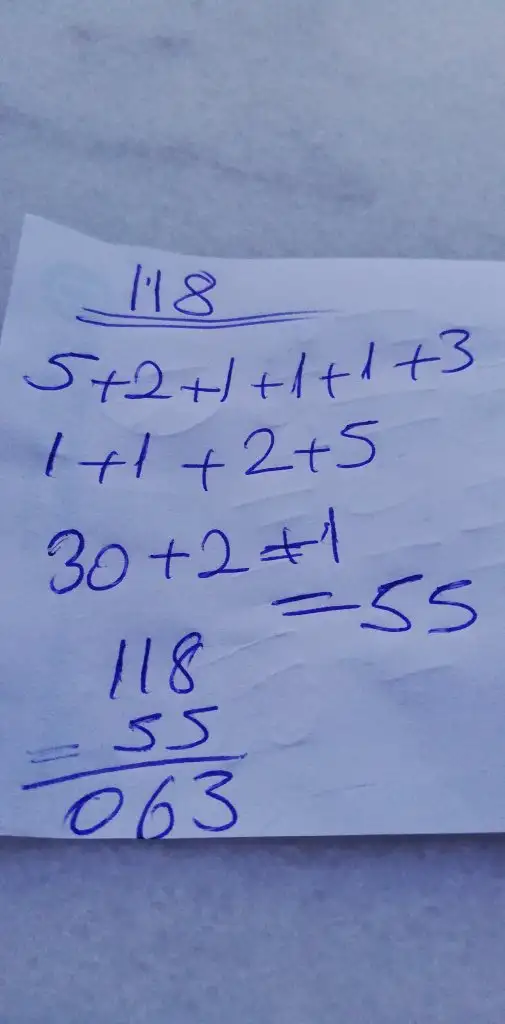 118
5+2+1+1+1+3
1+1+2+5
30+2+1
=55
118
= 55
063